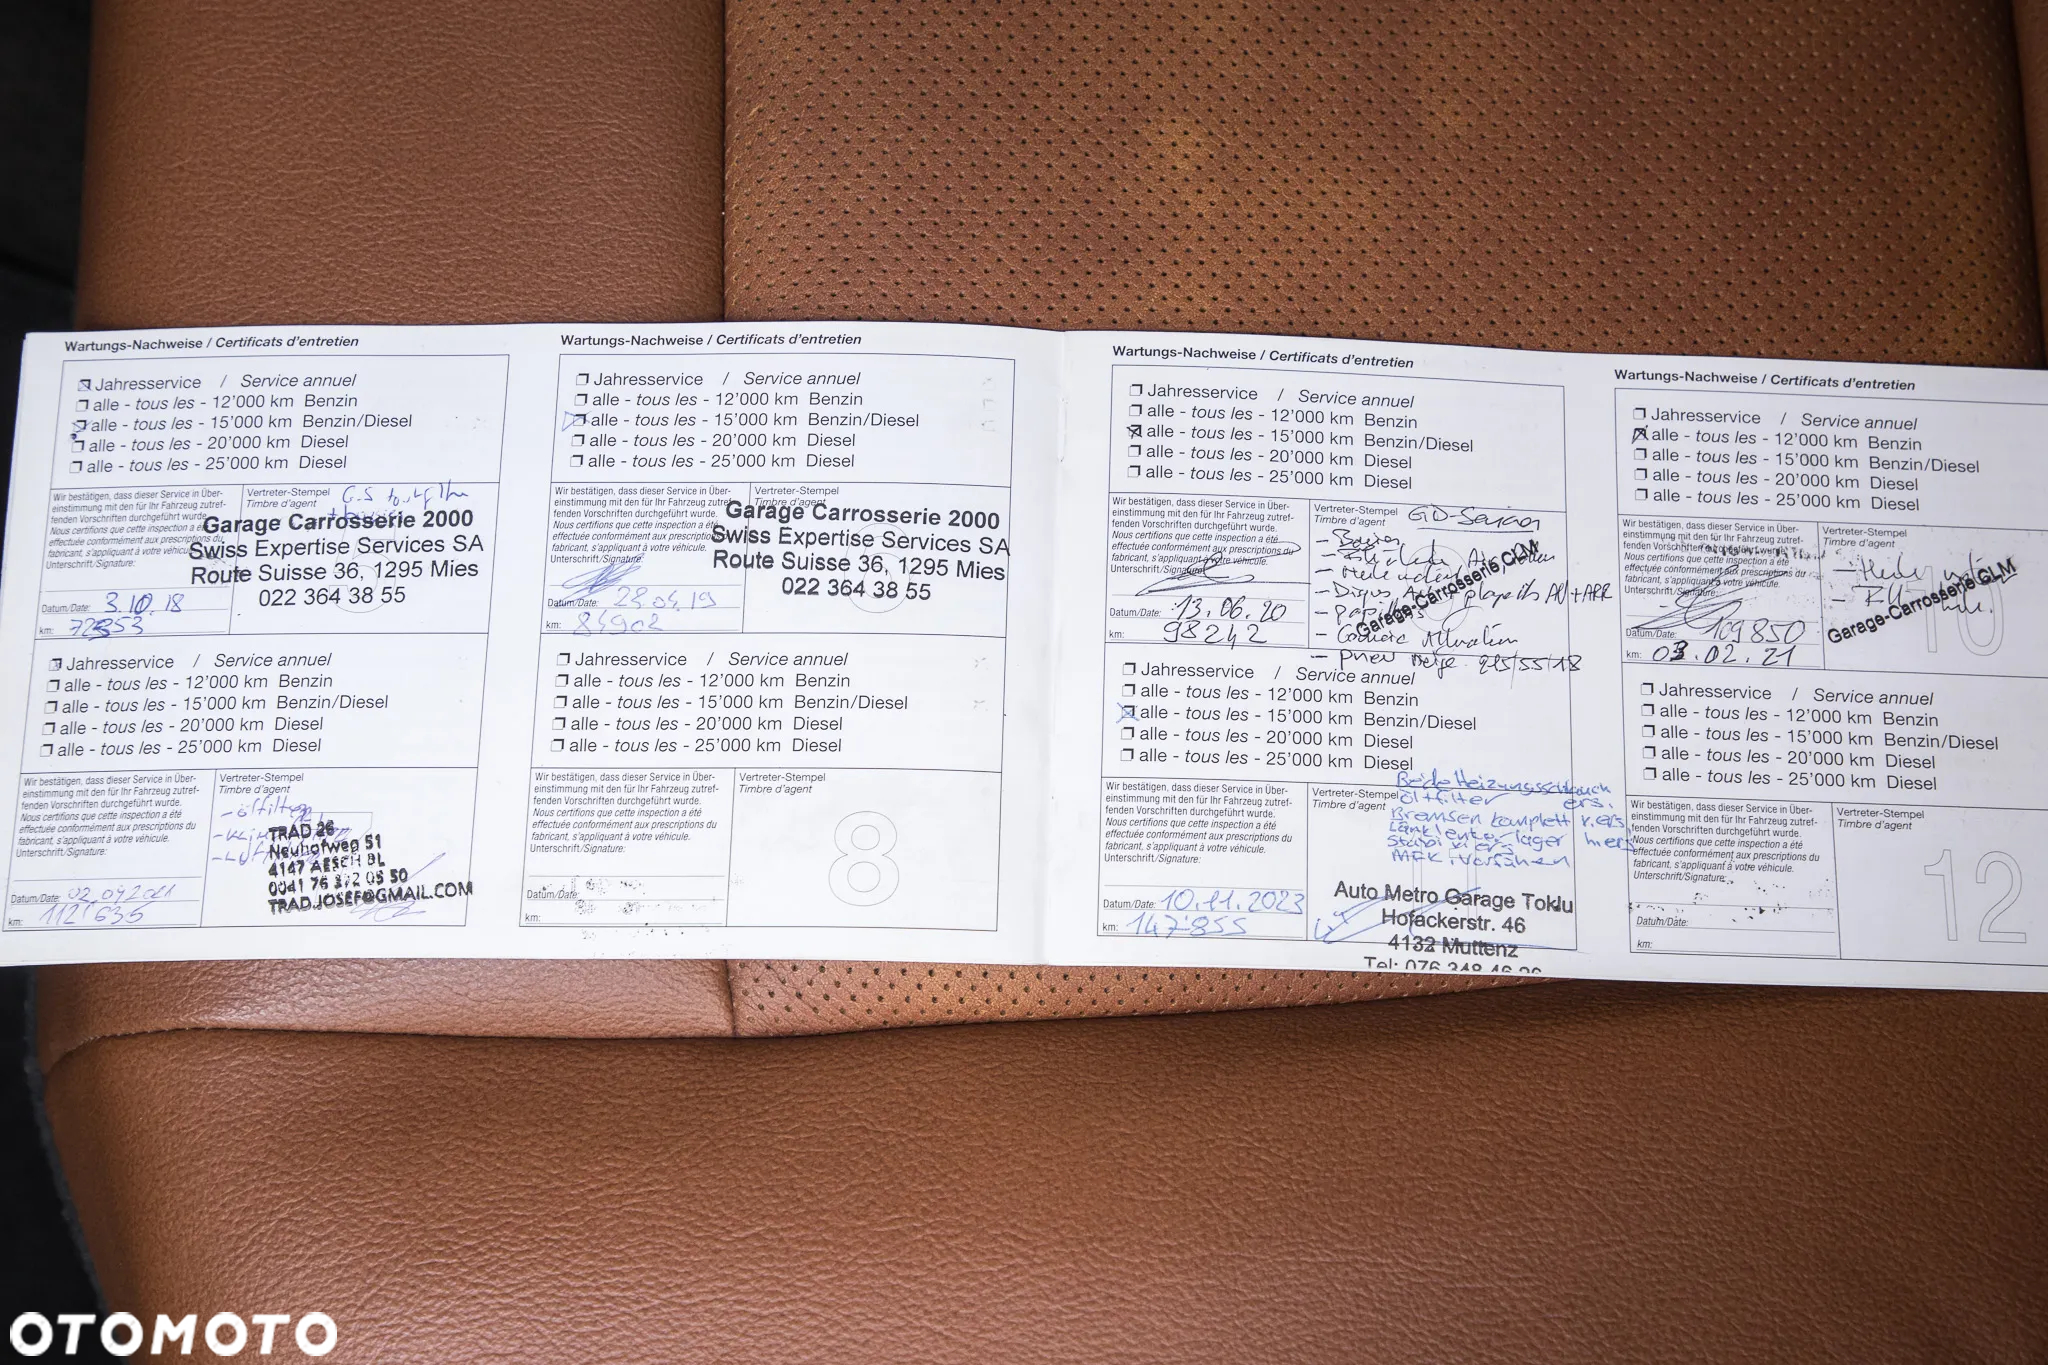 Wartungs-Nachweise / Certificats d'entretien
Jahresservice / Service annuel
alle - tous les - 12'000 km Benzin
alle - tous les - 15'000 km Benzin/Diesel
alle - tous les - 20'000 km Diesel
alle - tous les - 25'000 km Diesel
Wir bestätigen, dass dieser Service in Über-
einstimmung mit den für Ihr Fahrzeug zutref-
fenden Vorschriften durchgeführt wurde.
Nous certifions que cette inspection a été
effectuée conformément aux prescriptions du
fabricant, s'appliquant à votre véhicule.
Unterschrift/Signature:
Datum/Date: 3.10.18
km: 72353
Vertreter-Stempel
Garage Carrosserie 2000
Swiss Expertise Services SA
Route Suisse 36, 1295 Mies
022 364 38 55
Jahresservice / Service annuel
alle - tous les - 12'000 km Benzin
alle - tous les - 15'000 km Benzin/Diesel
alle - tous les - 20'000 km Diesel
alle - tous les - 25'000 km Diesel
Wir bestätigen, dass dieser Service in Über-
einstimmung mit den für Ihr Fahrzeug zutref-
fenden Vorschriften durchgeführt wurde.
Nous certifions que cette inspection a été
effectuée conformément aux prescriptions du
fabricant, s'appliquant à votre véhicule.
Unterschrift/Signature:
Datum/Date: 02.09.2021
km: 112'635
Vertreter-Stempel
Timbre d'agent
- ölfilter
TRAD 26
Neuhofweg 51
4147 AESCH BL
0041 76 372 05 50
TRAD.JOSEF@GMAIL.COM
Wartungs-Nachweise / Certificats d'entretien
Jahresservice / Service annuel
alle - tous les - 12'000 km Benzin
alle - tous les - 15'000 km Benzin/Diesel
alle - tous les - 20'000 km Diesel
alle - tous les - 25'000 km Diesel
Wir bestätigen, dass dieser Service in Über-
einstimmung mit den für Ihr Fahrzeug zutref-
fenden Vorschriften durchgeführt wurde.
Nous certifions que cette inspection a été
effectuée conformément aux prescriptions du
fabricant, s'appliquant à votre véhicule.
Unterschrift/Signature:
Datum/Date: 23.04.19
km: 84902
Vertreter-Stempel
Timbre d'agent
Garage Carrosserie 2000
Swiss Expertise Services SA
Route Suisse 36, 1295 Mies
022 364 38 55
Jahresservice / Service annuel
alle - tous les - 12'000 km Benzin
alle - tous les - 15'000 km Benzin/Diesel
alle - tous les - 20'000 km Diesel
alle - tous les - 25'000 km Diesel
Wir bestätigen, dass dieser Service in Über-
einstimmung mit den für Ihr Fahrzeug zutref-
fenden Vorschriften durchgeführt wurde.
Nous certifions que cette inspection a été
effectuée conformément aux prescriptions du
fabricant, s'appliquant à votre véhicule.
Unterschrift/Signature:
Datum/Date:
km:
Vertreter-Stempel
Timbre d'agent
8
Wartungs-Nachweise / Certificats d'entretien
Jahresservice / Service annuel
alle - tous les - 12'000 km Benzin
alle - tous les - 15'000 km Benzin/Diesel
alle - tous les - 20'000 km Diesel
alle - tous les - 25'000 km Diesel
Wir bestätigen, dass dieser Service in Über-
einstimmung mit den für Ihr Fahrzeug zutref-
fenden Vorschriften durchgeführt wurde.
Nous certifions que cette inspection a été
effectuée conformément aux prescriptions du
fabricant, s'appliquant à votre véhicule.
Unterschrift/Signature:
Datum/Date: 13.06.20
km: 98242
Vertreter-Stempel
Timbre d'agent
Garage-Carrosserie GLM
- pneu neige 215/55/18
Jahresservice / Service annuel
alle - tous les - 12'000 km Benzin
alle - tous les - 15'000 km Benzin/Diesel
alle - tous les - 20'000 km Diesel
alle - tous les - 25'000 km Diesel
Wir bestätigen, dass dieser Service in Über-
einstimmung mit den für Ihr Fahrzeug zutref-
fenden Vorschriften durchgeführt wurde.
Nous certifions que cette inspection a été
effectuée conformément aux prescriptions du
fabricant, s'appliquant à votre véhicule.
Unterschrift/Signature:
Datum/Date: 10.11.2023
km: 147'855
Vertreter-Stempel
Timbre d'agent
Beide Heizungsschlauch
Ölfilter ers.
Bremsen komplett v. ers
MFK vorführen
Auto Metro Garage Toklu
Hofackerstr. 46
4132 Muttenz
Tel: 076 348 46
Wartungs-Nachweise / Certificats d'entretien
Jahresservice / Service annuel
alle - tous les - 12'000 km Benzin
alle - tous les - 15'000 km Benzin/Diesel
alle - tous les - 20'000 km Diesel
alle - tous les - 25'000 km Diesel
Wir bestätigen, dass dieser Service in Über-
einstimmung mit den für Ihr Fahrzeug zutref-
fenden Vorschriften durchgeführt wurde.
Nous certifions que cette inspection a été
effectuée conformément aux prescriptions du
fabricant, s'appliquant à votre véhicule.
Unterschrift/Signature:
Datum/Date: 109850
km: 03.02.21
Vertreter-Stempel
Timbre d'agent
Garage-Carrosserie GLM
10
Jahresservice / Service annuel
alle - tous les - 12'000 km Benzin
alle - tous les - 15'000 km Benzin/Diesel
alle - tous les - 20'000 km Diesel
alle - tous les - 25'000 km Diesel
Wir bestätigen, dass dieser Service in Über-
einstimmung mit den für Ihr Fahrzeug zutref-
fenden Vorschriften durchgeführt wurde.
Nous certifions que cette inspection a été
effectuée conformément aux prescriptions du
fabricant, s'appliquant à votre véhicule.
Unterschrift/Signature:
Datum/Date:
km:
Vertreter-Stempel
Timbre d'agent
12
OTOMOTO